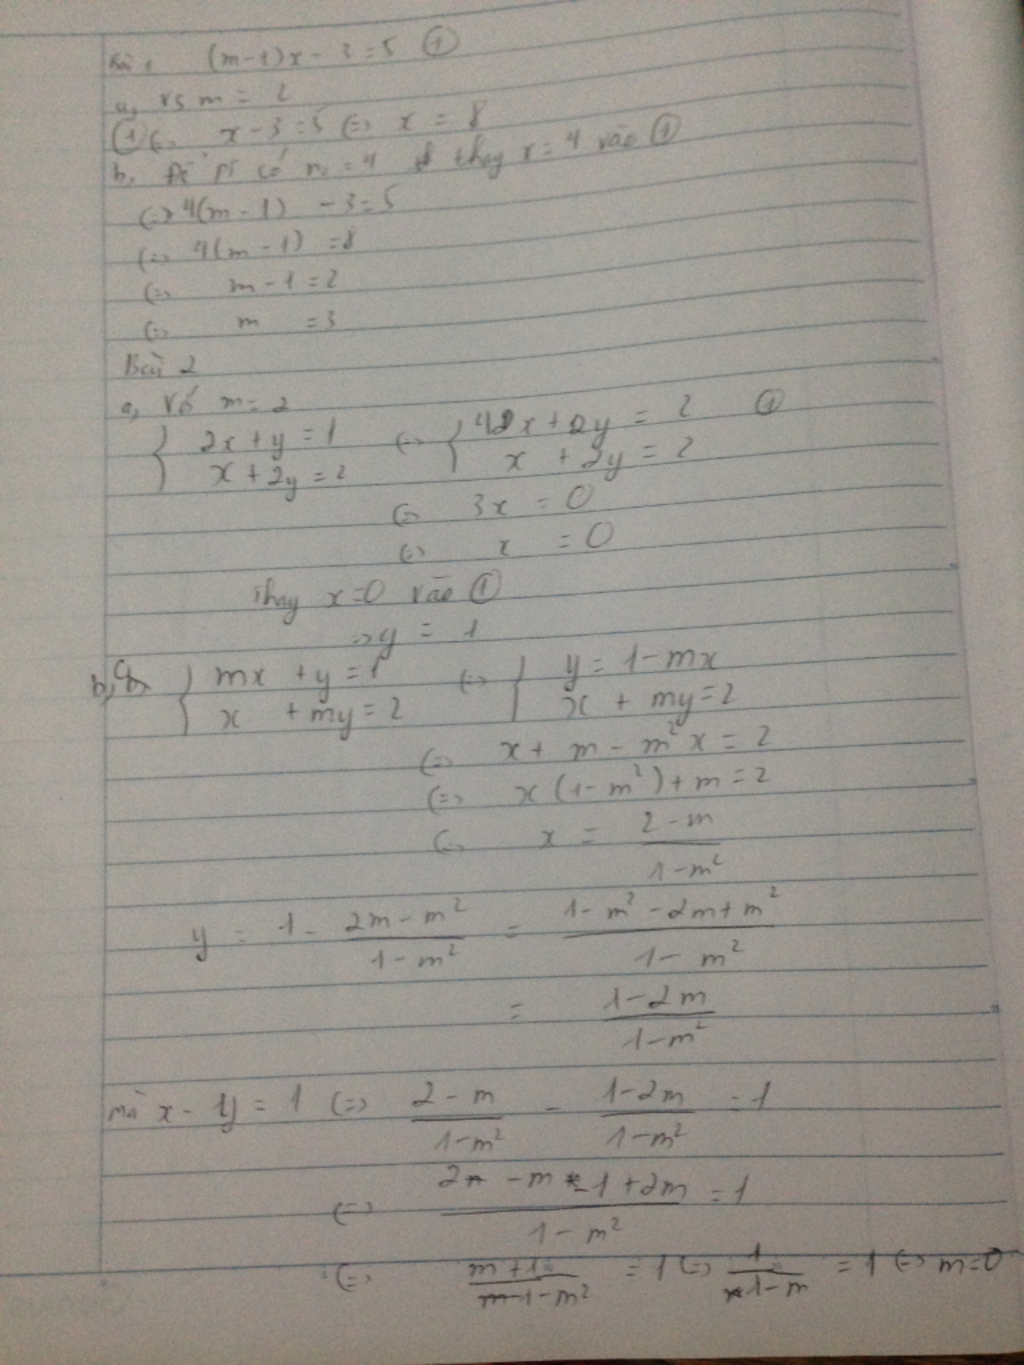 Bài 1 (m-1)x - 3 = 5 ①
a, vs m = 2
① (=) x - 3 = 5 (=) x = 8
b, Để pt có no = 4 thay x = 4 vào ①
(=) 4(m - 1) - 3 = 5
(=) 4(m - 1) = 8
(=) m - 1 = 2
(=) m = 3
Bài 2
a, Với m = 2
{ 2x + y = 1 (=) { 4x + 2y = 2 ①
x + 2y = 2 x + 2y = 2
(=) 3x = 0
(=) x = 0
Thay x = 0 vào ①
=> y = 1
b, { mx + y = 1 (=) { y = 1 - mx
x + my = 2 x + my = 2
(=) x + m - m²x = 2
(=) x(1 - m²) + m = 2
(=) x = \frac{2 - m}{1 - m²}
y = 1 - \frac{2m - m²}{1 - m²} = \frac{1 - m² - 2m + m²}{1 - m²}
= \frac{1 - 2m}{1 - m²}
mà x - y = 1 (=) \frac{2 - m}{1 - m²} - \frac{1 - 2m}{1 - m²} = 1
(=) \frac{2 - m - 1 + 2m}{1 - m²} = 1
(=) \frac{m + 1}{1 - m²} = 1 (=) \frac{1}{1 - m} = 1 (=) m = 0